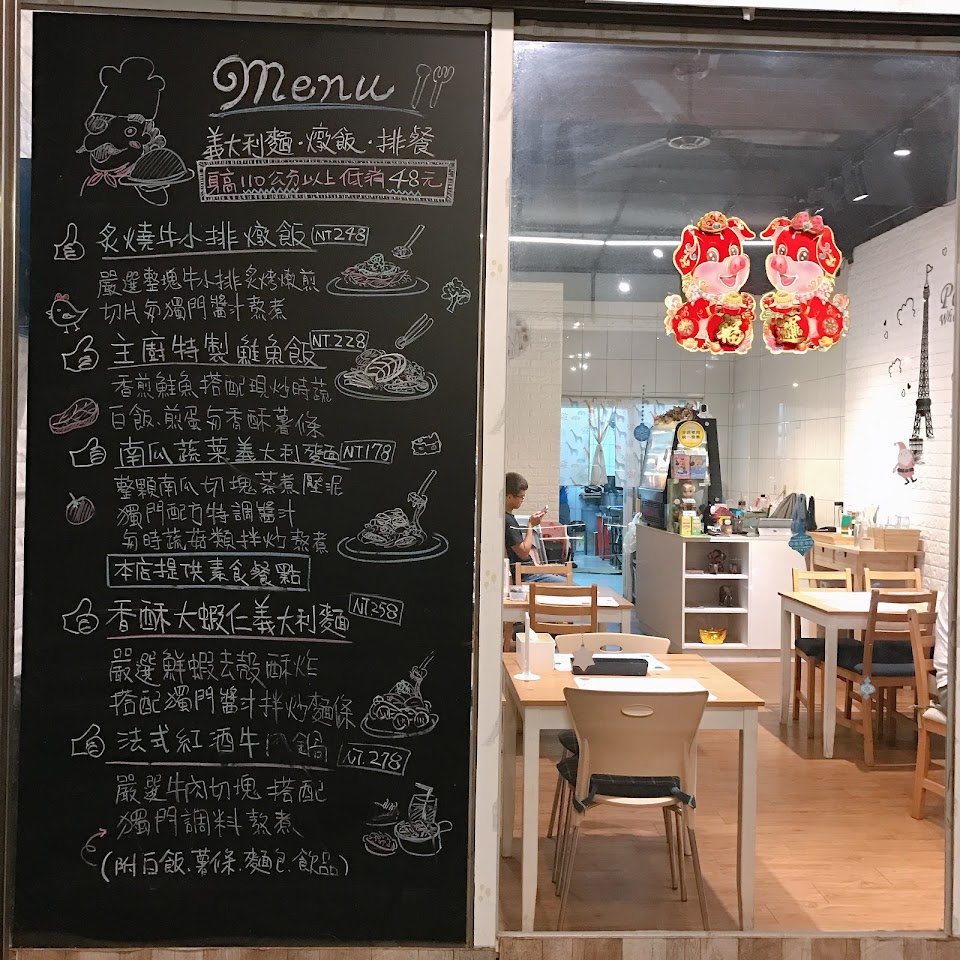 Menu
義大利麵·燉飯·排餐
身高110公方以上低消48元
炙燒牛小排燉飯 NT298
嚴選整塊牛小排炙烤嫩煎
切片匆獨門醬汁熬煮
主廚特製鮭魚飯 NT228
香煎鮭魚搭配現炒時蔬
白飯.煎蛋匆香酥薯條
南瓜蔬菜義大利麵 NT178
整顆南瓜切塊蒸煮壓泥
獨門配方特調醬汁
匆時蔬菇類拌炒熬煮
本店提供素食餐點
香酥大蝦仁義大利麵 NT258
嚴選鮮蝦去殼酥炸
搭配獨門醬汁拌炒麵條
法式紅酒牛 鍋 NT.278
嚴選牛肉切塊搭配
獨門調料熬煮
(附白飯.薯條.麵包.飲品)
福